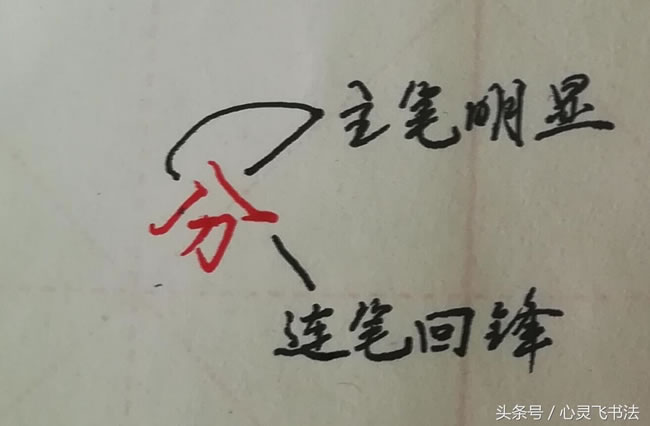 主笔明显
分
连笔回锋
头条号/心灵飞书法